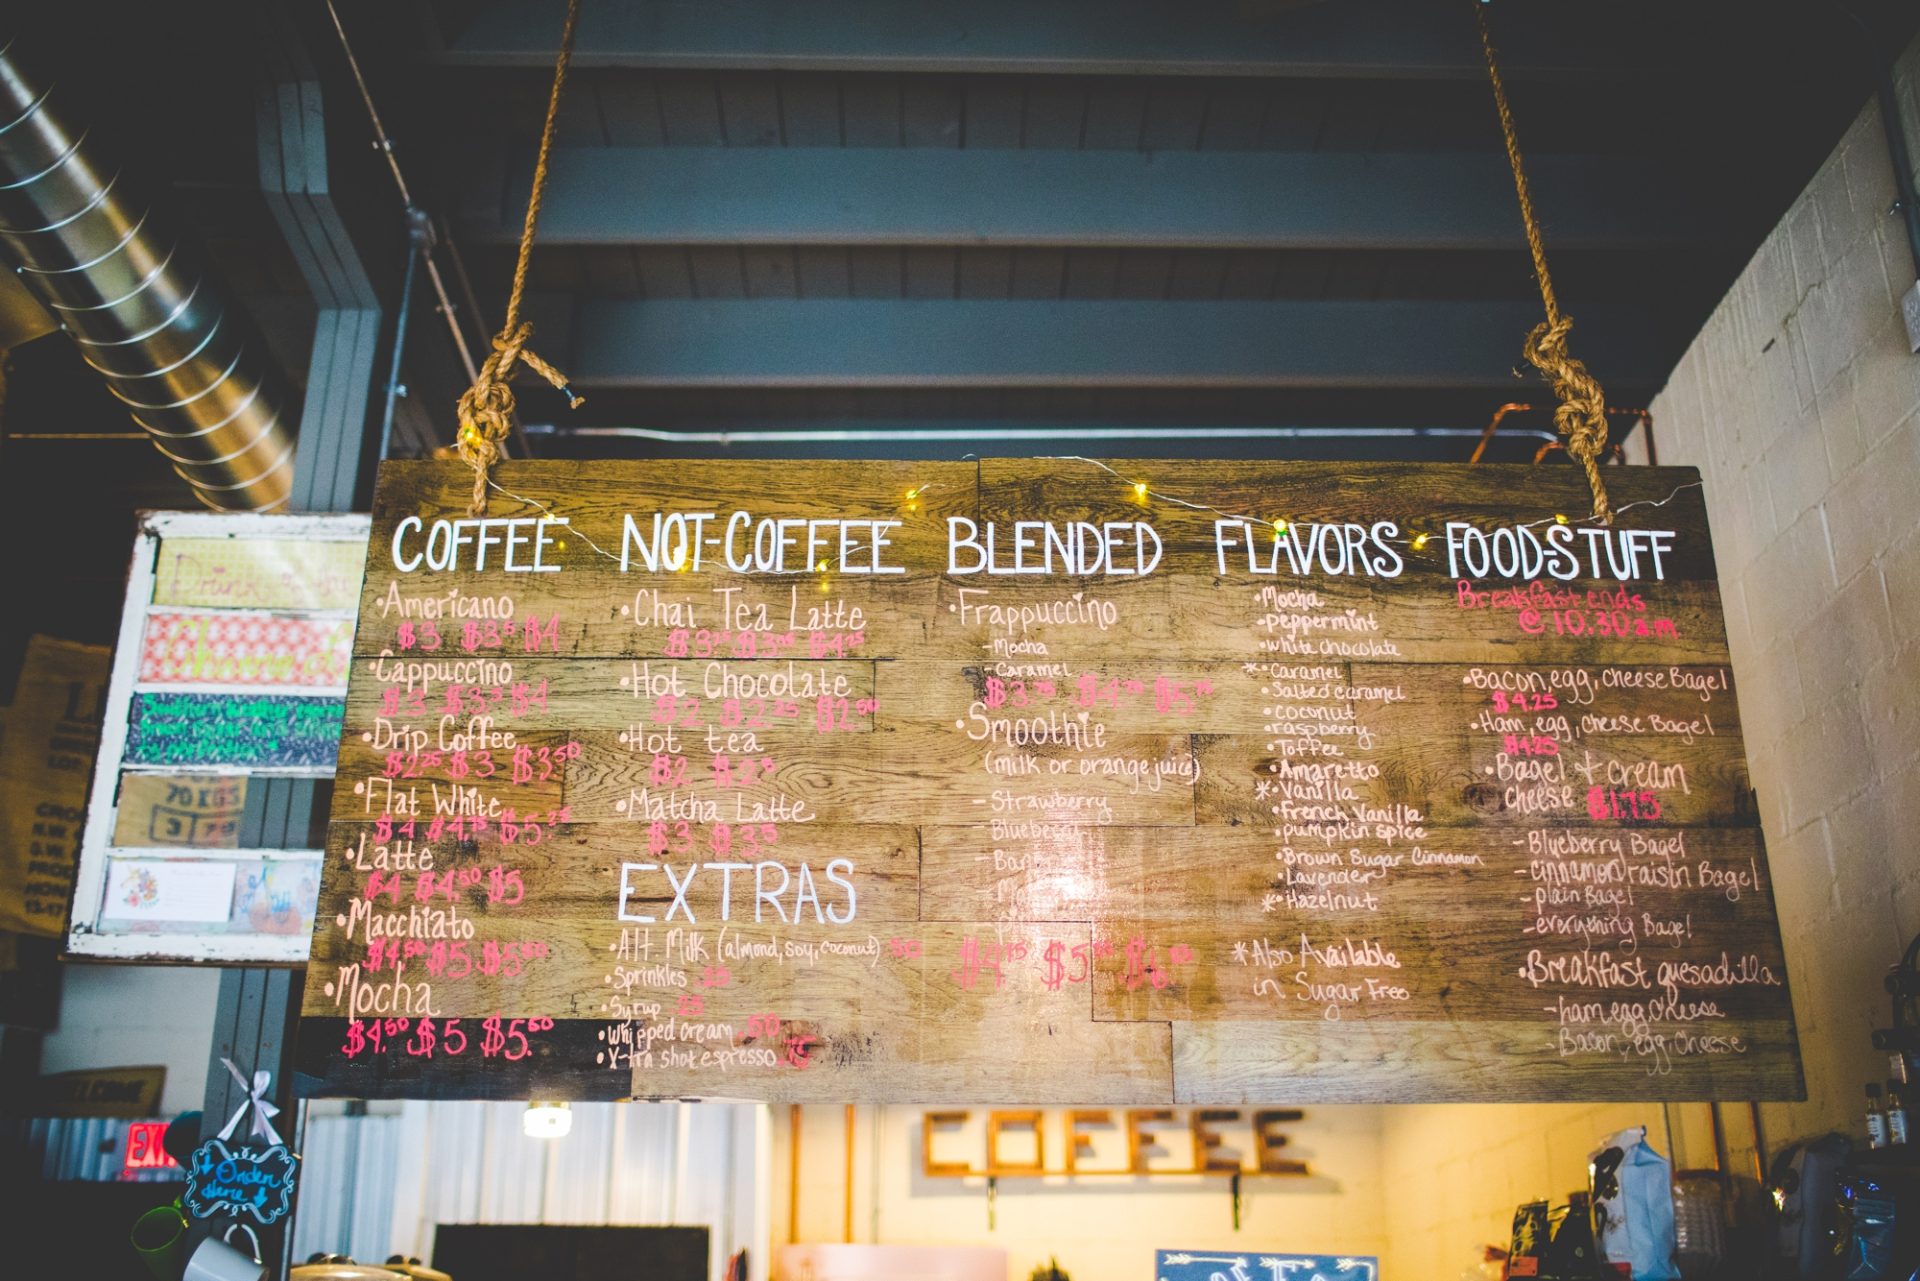 COFFEE
•Americano
$3 $3.5 $4
•Cappuccino
$3 $3.5 $4
•Drip Coffee
$2.25 $3 $3.50
•Flat White
$4 $4.75 $5.25
•Latte
$4 $4.50 $5
•Macchiato
$4.50 $5 $5.50
•Mocha
$4.50 $5 $5.50
NOT-COFFEE
•Chai Tea Latte
•Hot Chocolate
$2 $2.25 $2.50
•Hot tea
$2
•Matcha Latte
$3 $3.5
EXTRAS
•Alt. Milk (almond, soy, coconut) .50
•Sprinkles .25
•Syrup .25
•Whipped cream .50
•X-tra shot espresso .75
BLENDED
•Frappuccino
-Mocha
-Caramel
$3.75 $4.75 $5.75
•Smoothie
(milk or orange juice)
-Strawberry
-Blueberry
FLAVORS
•Mocha
•peppermint
•white chocolate
*•Caramel
•Salted caramel
•coconut
•raspberry
•Toffee
•Amaretto
*•Vanilla
•French Vanilla
•pumpkin spice
•Brown Sugar Cinnamon
•Lavender
*•Hazelnut
*Also Available
in Sugar Free
FOOD-STUFF
Breakfast ends
@ 10:30 a.m.
•Bacon, egg, cheese Bagel
$4.25
•Ham, egg, cheese Bagel
$4.25
•Bagel + cream
cheese $1.75
-Blueberry Bagel
-cinnamon raisin Bagel
-plain Bagel
-everything Bagel
•Breakfast quesadilla
-ham egg cheese
-Bacon, egg, cheese
70 KGS
Order
Here
COFFEE